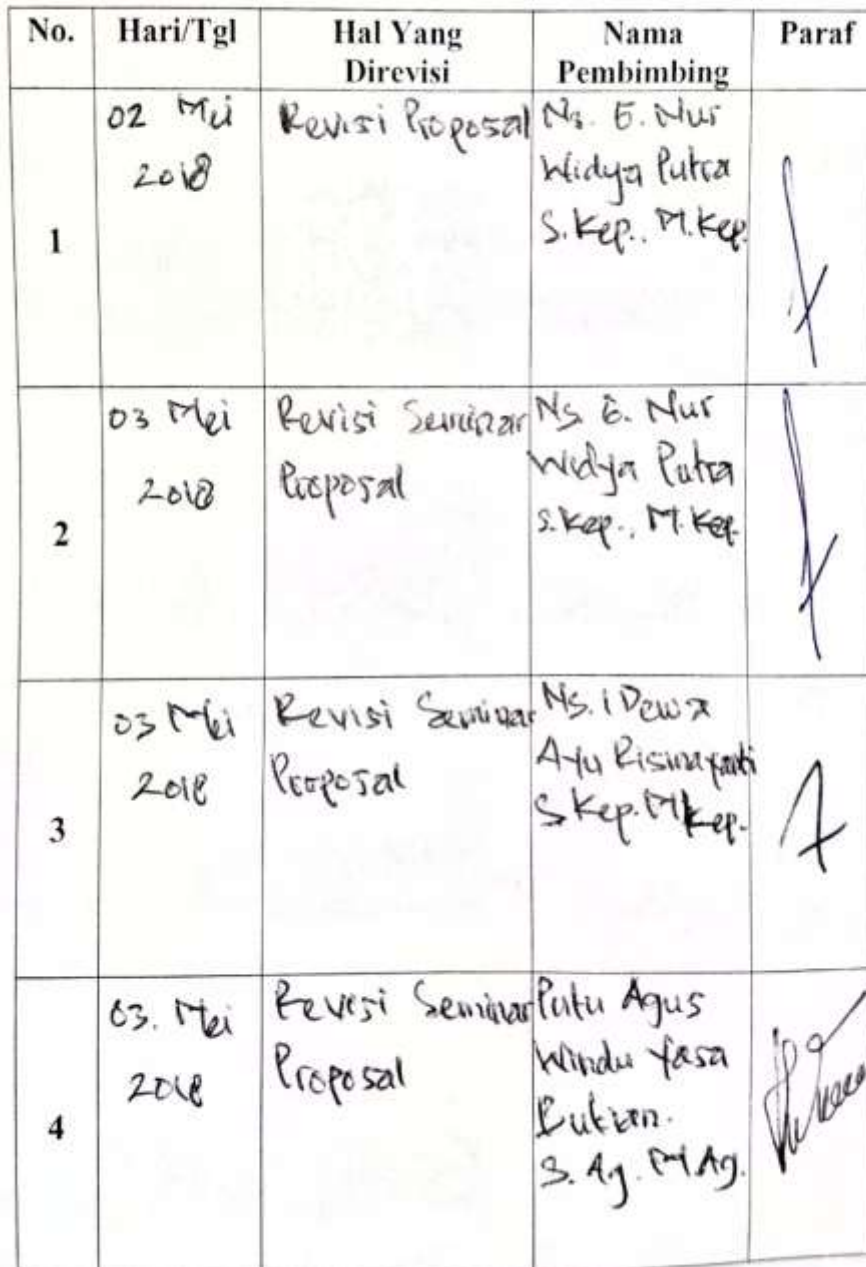 No. Hari/Tgl Hal Yang Direvisi Nama Pembimbing Paraf
1
02 Mei
2018
Revisi Proposal
Ns. E. Nur
Widya Putra
S.Kep., M.Kep.
2
03 Mei
2018
Revisi Seminar
Proposal
Ns. E. Nur
Widya Putra
S.Kep., M.Kep.
3
03 Mei
2018
Revisi Seminar
Proposal
Ns. I Dewa
Ayu Rismayanti
S.Kep. M.Kep.
4
03. Mei
2018
Revisi Seminar
Proposal
Putu Agus
Windu Yasa
Bukian.
S. Ag. M.Ag.